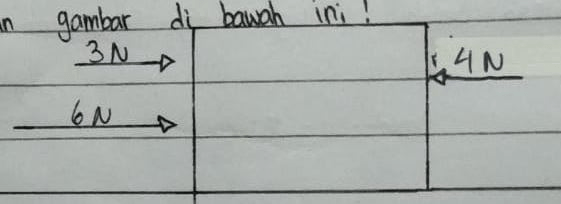 n gambar di bawah ini !
3N
4N
6N